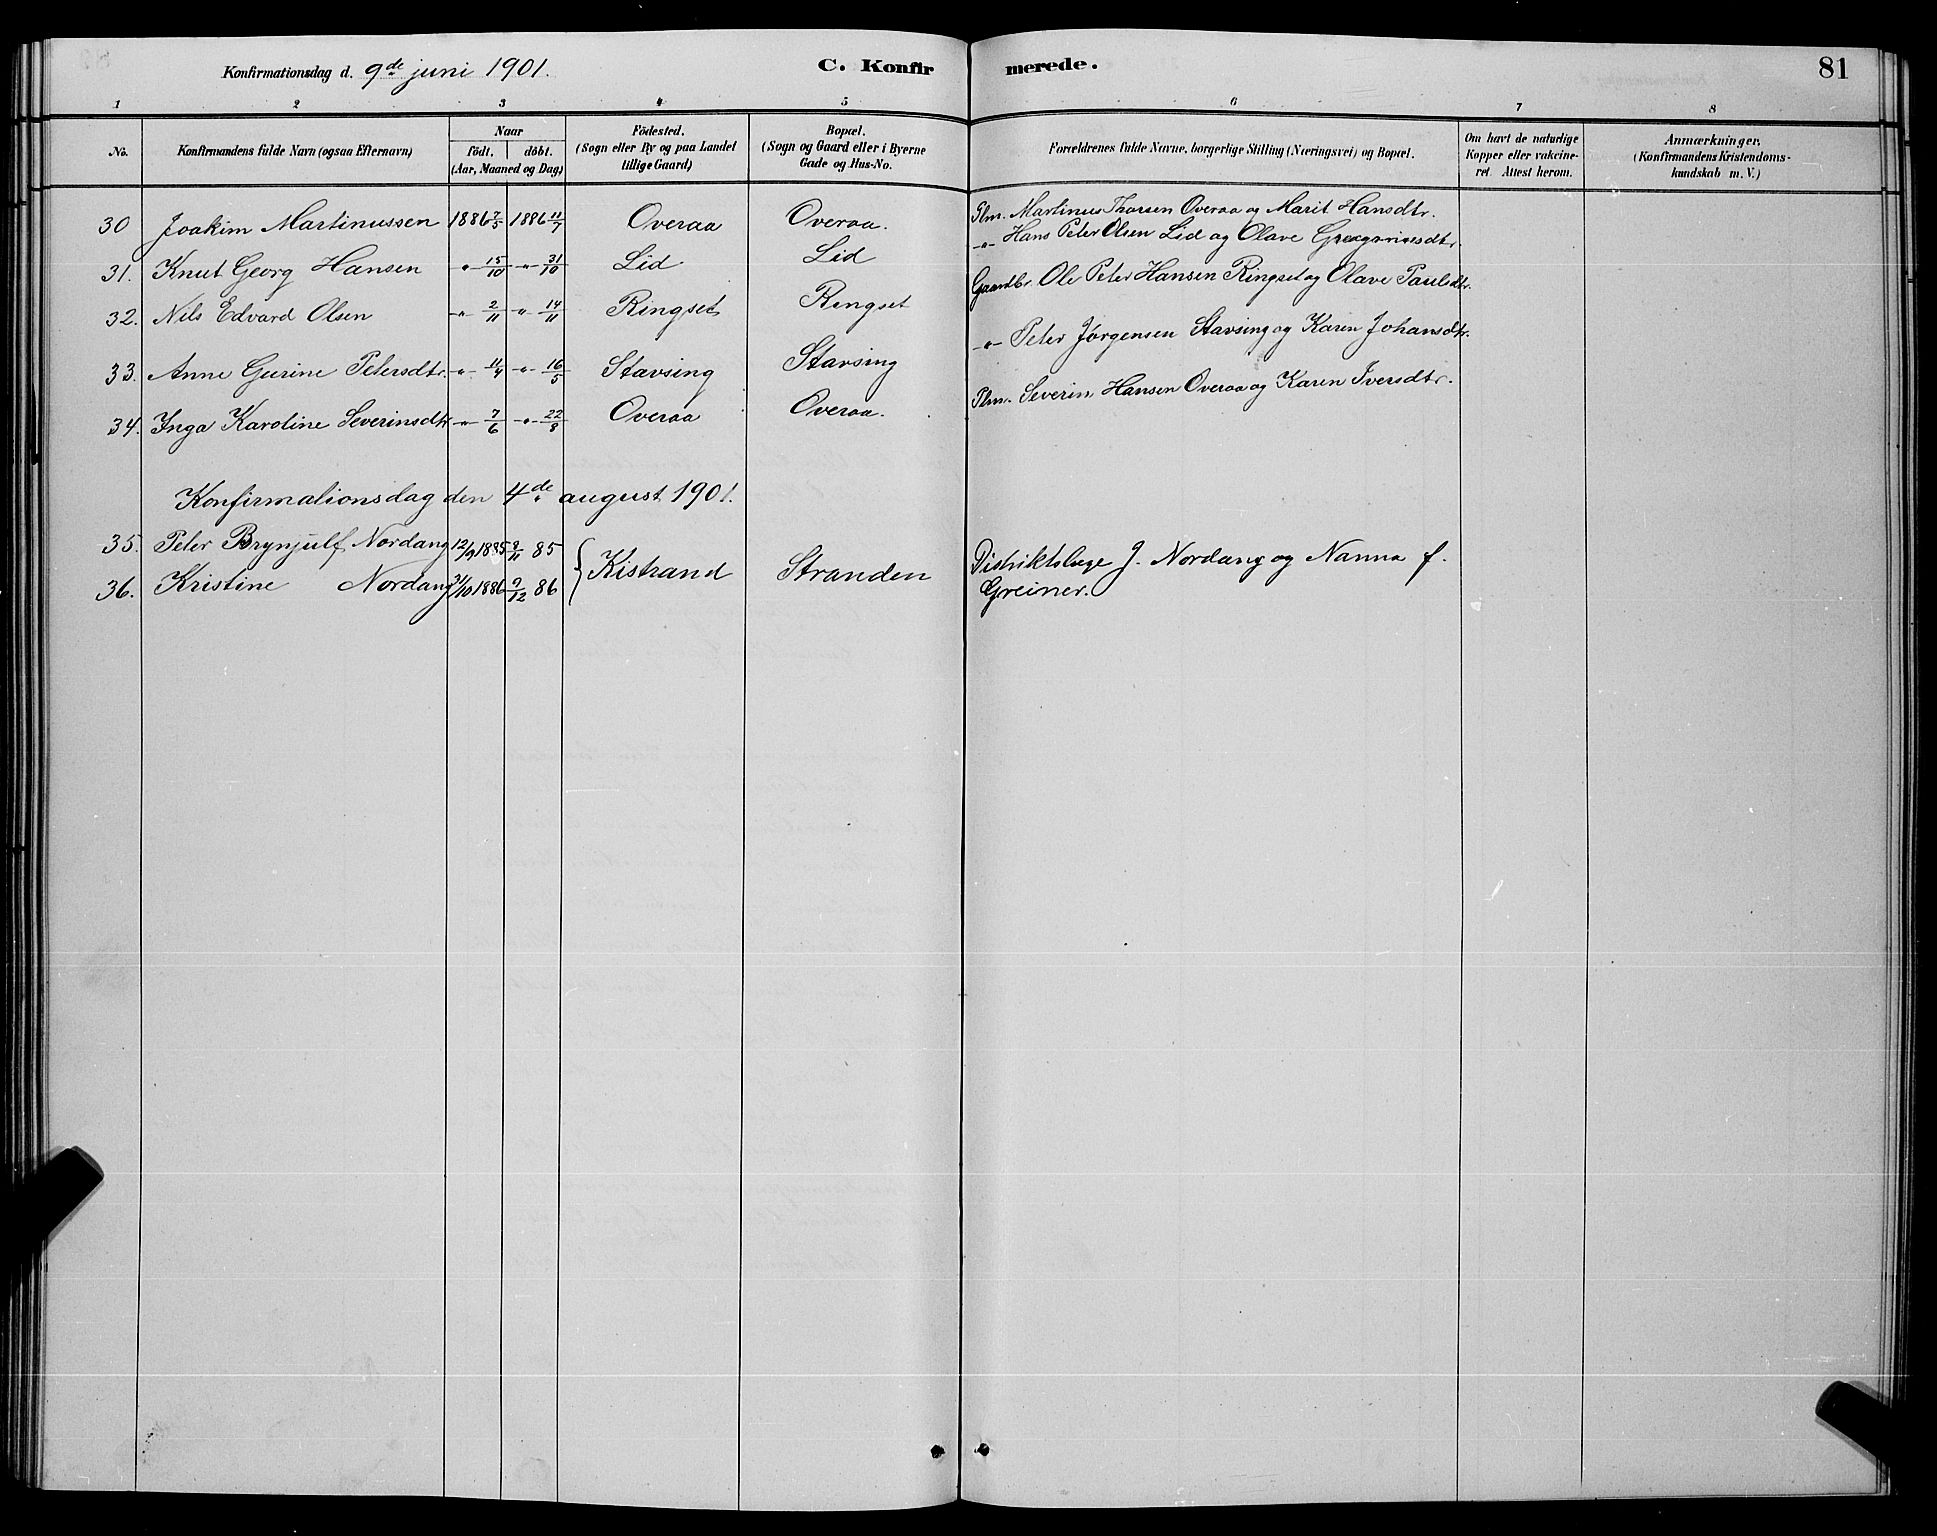 Konfirmationsdag d. 9de juni 1901. C. Konfirmerede. 81
1 2 3 4 5 6 7 8
No. Konfirmandens fulde Navn (ogsaa Efternavn) Naar födt. döbt. (Aar, Maaned og Dag) Födested. (Sogn eller By og paa Landet tillige Gaard) Bopæl. (Sogn og Gaard eller i Byerne Gade og Hus-No. Forældrenes fulde Navne, borgerlige Stilling (Næringsvei) og Bopæl. Om havt de naturlige Kopper eller vakcineret. Attest herom. Anmærkninger. (Konfirmandens Kristendomskundskab m. V.)
30 Joakim Martinussen 1886 7/5 1886 11/7 Overaa Overaa. Plm. Martinus Thorsen Overaa og Marit Hansdtr.
31. Knut Georg Hansen -"- 15/10 -"- 31/10 Lid Lid -"- Hans Peter Olsen Lid og Olave Gregoriusdtr.
32. Nils Edvard Olsen -"- 2/11 -"- 14/11 Ringset Ringset Gaardbr. Ole Peter Hansen Ringset og Olave Paulsdtr.
33. Anne Gurine Petersdtr. -"- 11/4 -"- 16/5 Stavsing Stavsing -"- Peter Jørgensen Stavsing og Karen Johansdtr.
34. Inga Karoline Severinsdtr -"- 7/6 -"- 22/8 Overaa Overaa. Plm. Severin Hansen Overaa og Karen Iversdtr.
Konfirmationsdag den 4de august 1901.
35. Peter Brynjulf Nordang 12/9 1885 8/11 85 Kistrand Stranden Distriktslæge J. Nordang og Nanna f.
36. Kristine Nordang 31/10 1886 9/12 86 Greiner.